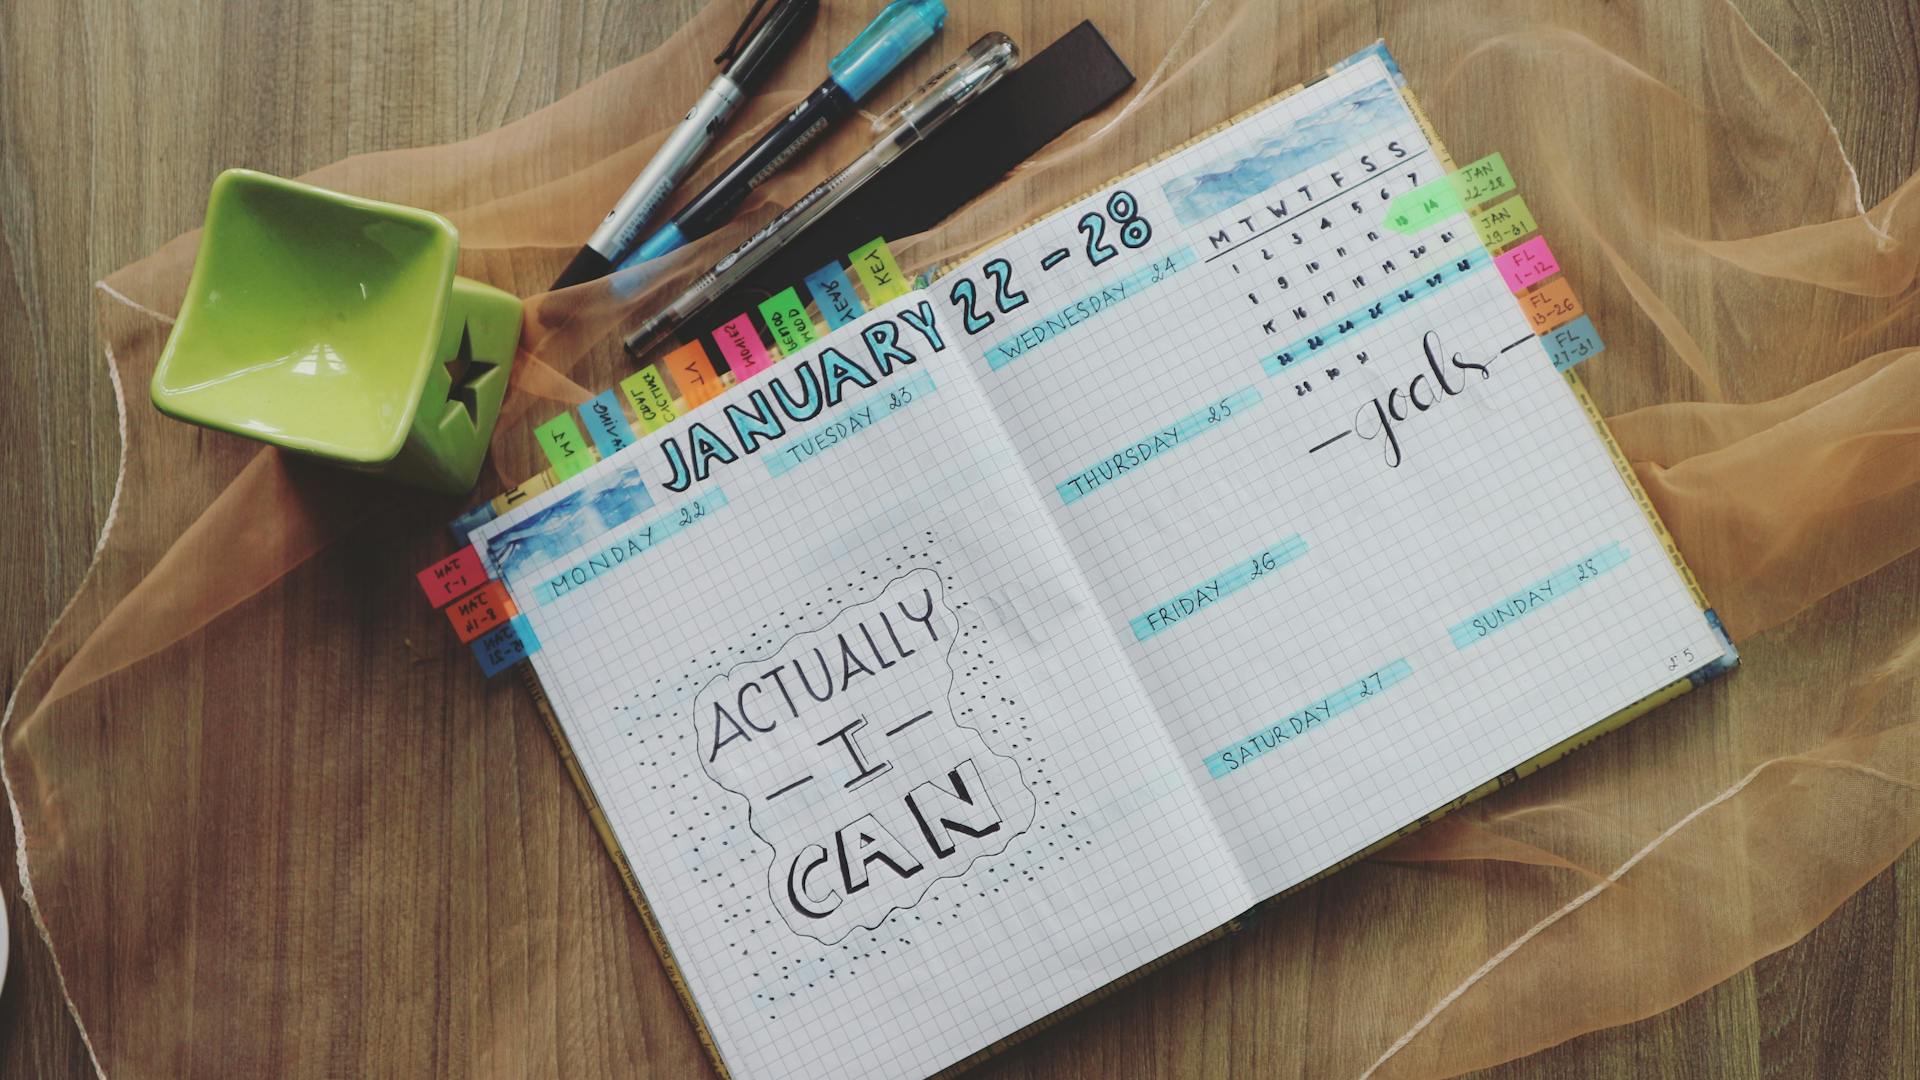 JANUARY 22-28
MONDAY 22
TUESDAY 23
ACTUALLY
- I -
CAN
WEDNESDAY 24
THURSDAY 25
FRIDAY 26
SATURDAY 27
SUNDAY 28
M T W T F S S
1 2 3 4 5 6 7
8 9 10 11 12 13 14
15 16 17 18 19 20 21
22 23 24 25 26 27 28
29 30 31
- goals -
25
KEY
YEAR
MOOD
JAN
22-28
JAN
29-31
FL
1-12
FL
13-26
FL
27-31
JAN
1-7
JAN
8-14
JAN